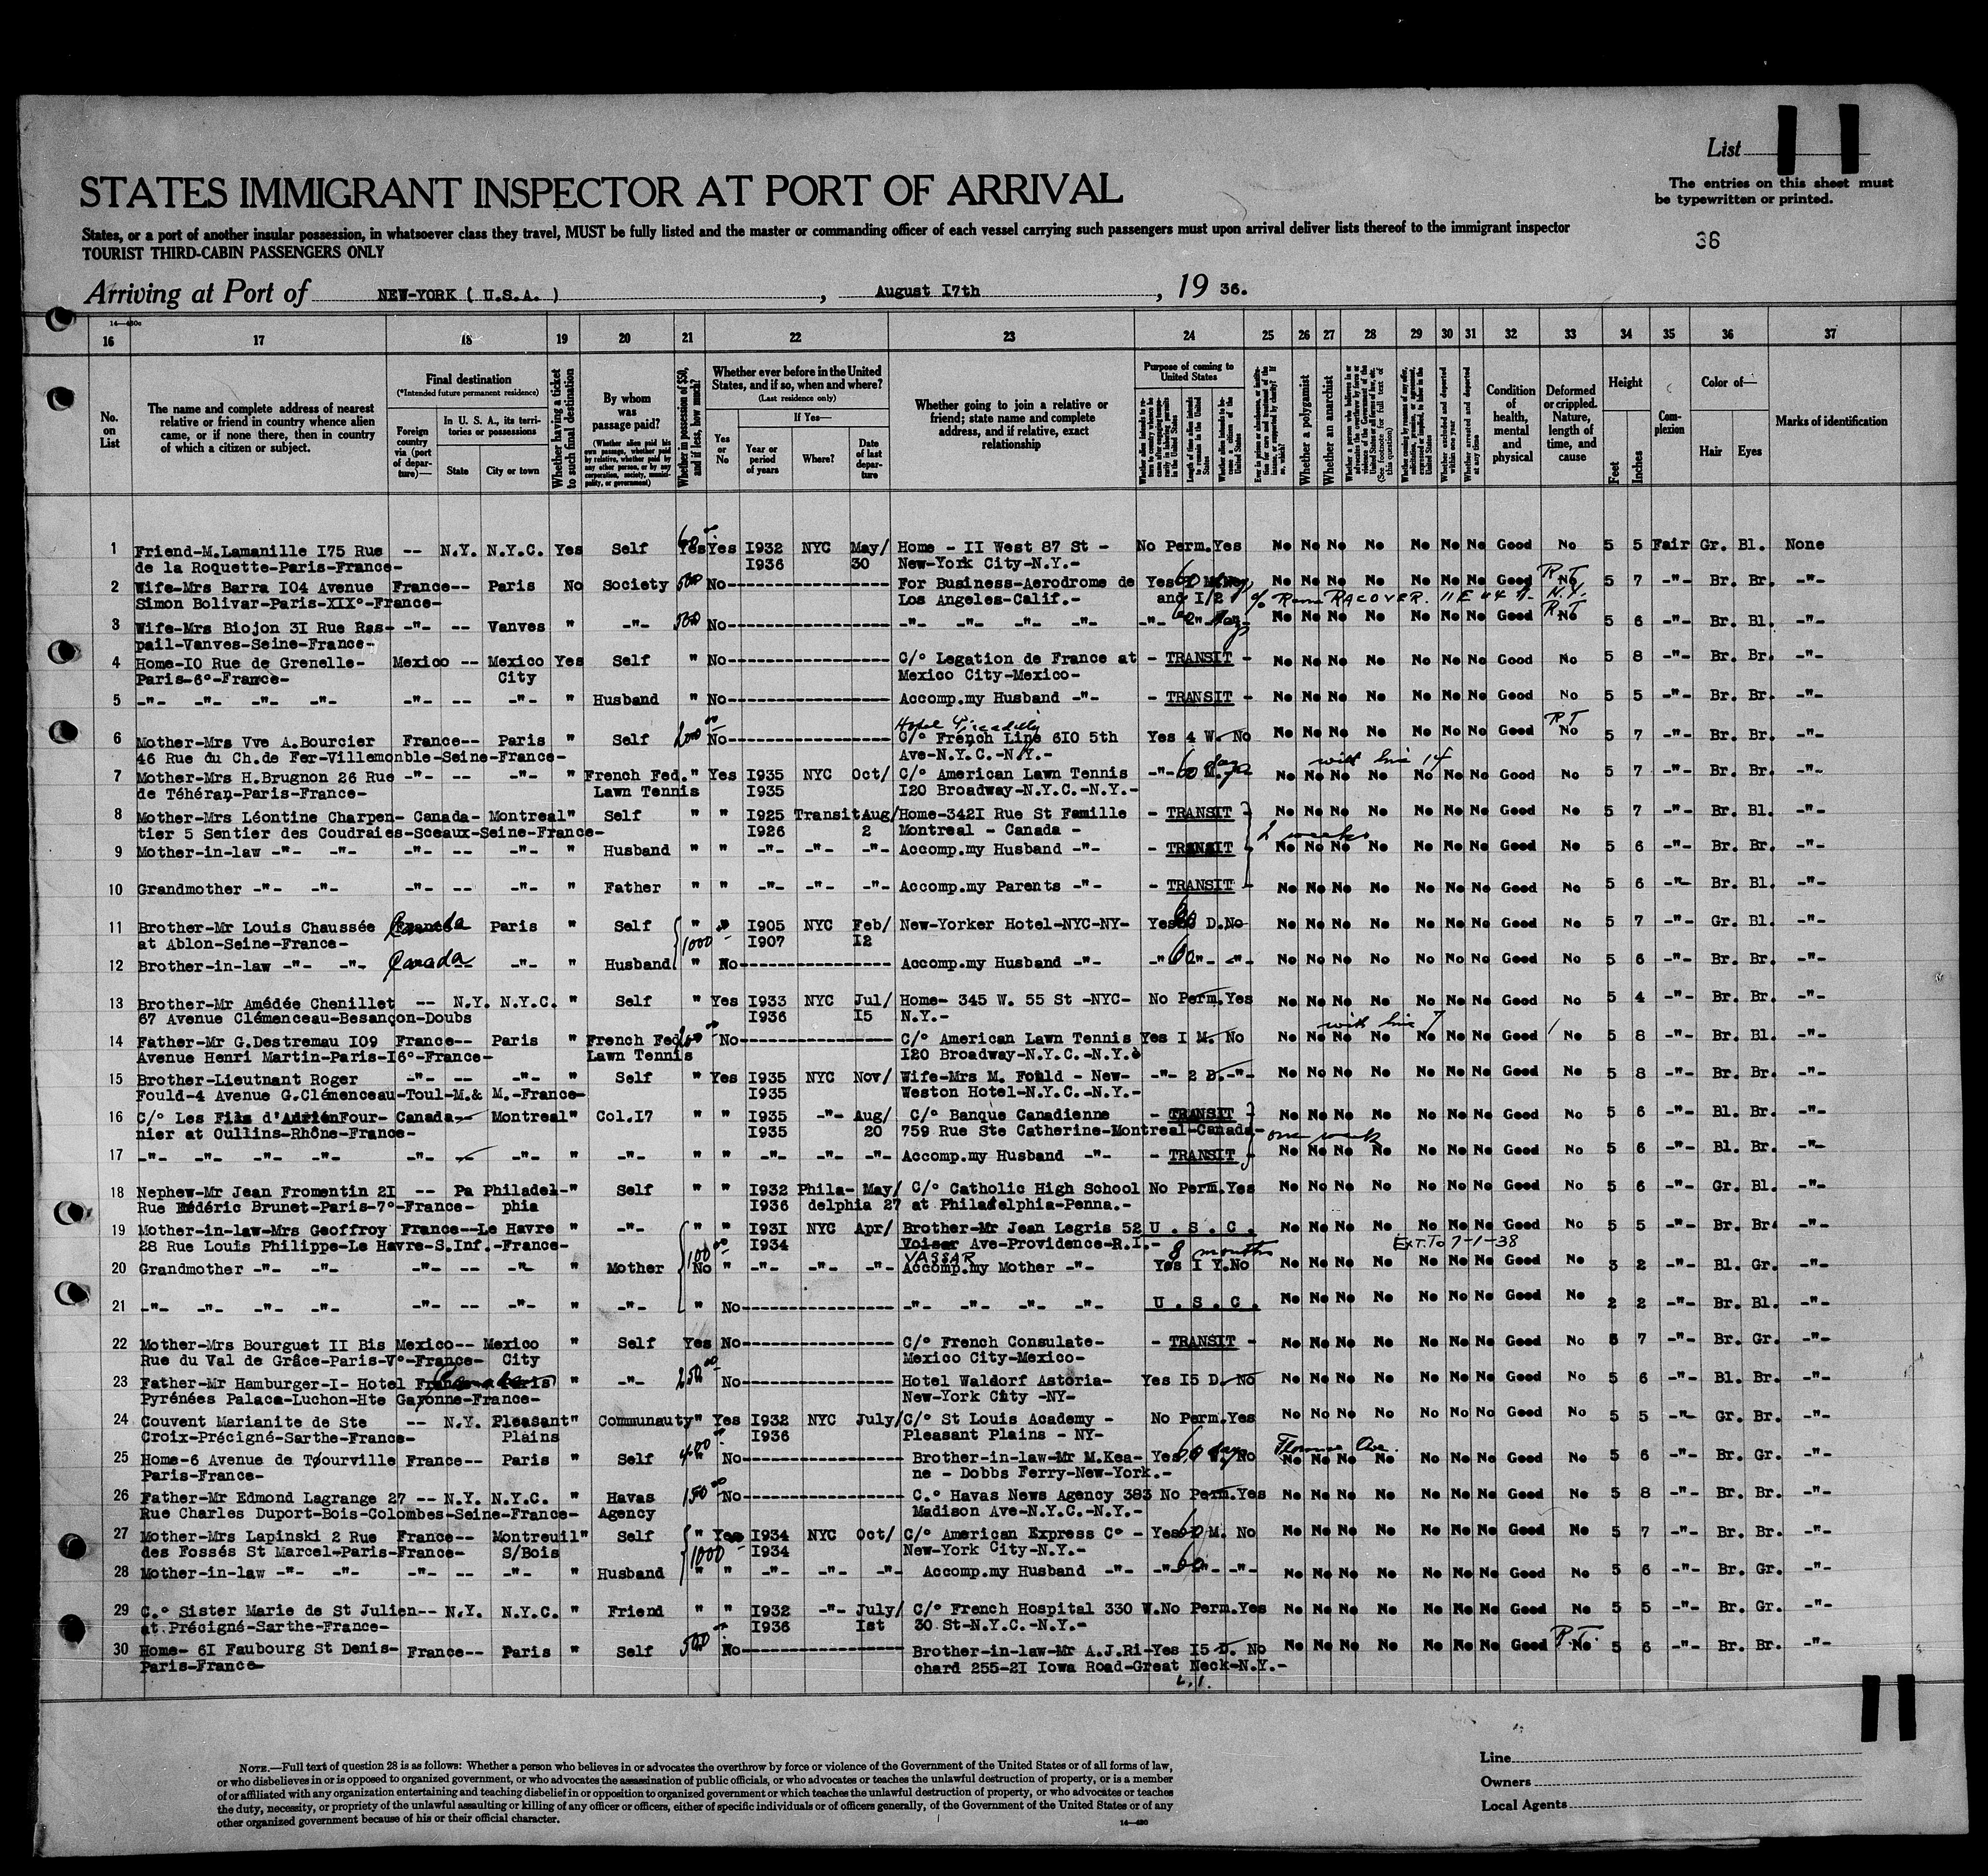 List 11
STATES IMMIGRANT INSPECTOR AT PORT OF ARRIVAL
The entries on this sheet must
be typewritten or printed.
States, or a port of another insular possession, in whatsoever class they travel, MUST be fully listed and the master or commanding officer of each vessel carrying such passengers must upon arrival deliver lists thereof to the immigrant inspector
TOURIST THIRD-CABIN PASSENGERS ONLY
36
Arriving at Port of NEW-YORK ( U.S.A. ) , August I7th , 19 36.
16 17 18 19 20 21 22 23 24 25 26 27 28 29 30 31 32 33 34 35 36 37
No. on List
The name and complete address of nearest relative or friend in country whence alien came, or if none there, then in country of which a citizen or subject.
Final destination (*Intended future permanent residence)
Foreign country via (port of departure)—
In U. S. A., its territories or possessions
State City or town
Whether having a ticket to such final destination
By whom was passage paid?
(Whether alien paid his own passage, whether paid by relative, whether paid by any other person, or by any corporation, society, municipality, or government)
Whether in possession of $50, and if less, how much?
Whether ever before in the United States, and if so, when and where?
(Last residence only)
Yes or No
If Yes—
Year or period of years Where? Date of last departure
Whether going to join a relative or friend; state name and complete address, and if relative, exact relationship
Purpose of coming to United States
Length of time alien intends to remain in the United States
Whether a polygamist
Whether an anarchist
Whether arrested and deported at any time
Condition of health, mental and physical
Deformed or crippled. Nature, length of time, and cause
Height Feet Inches
Complexion
Color of— Hair Eyes
Marks of identification
1 Friend-M.Lamanille I75 Rue -- N.Y. N.Y.C. Yes Self Yes Yes I932 NYC May/ Home - II West 87 St - No Perm.Yes No No No No No No No Good No 5 5 Fair Gr. Bl. None
de la Roquette-Paris-France- I936 30 New-York City-N.Y.-
2 Wife-Mrs Barra I04 Avenue France-- Paris No Society 500 No---------------- For Business-Aerodrome de Yes No No No No No No No Good No R T 5 7 -"- Br. Br. -"-
Simon Bolivar-Paris-XIX°-France- Los Angeles-Calif.- and I/2 RACOVER. 11 E 44 N.Y.
3 Wife-Mrs Biojon 3I Rue Ras- -"- -- Vanves " -"- 500 No---------------- -"- -"- -"- -"- -"- No No No No No No No Good No R T 5 6 -"- Br. Bl. -"-
pail-Vanves-Seine-France-
4 Home-IO Rue de Grenelle- Mexico -- Mexico Yes Self " No---------------- C/° Legation de France at - TRANSIT - No No No No No No No Good No 5 8 -"- Br. Br. -"-
Paris-6°-France- City Mexico City-Mexico-
5 -"- -"- -"- -"- -"- -- -"- " Husband " No---------------- Accomp.my Husband -"- - TRANSIT - No No No No No No No Good No 5 5 -"- Br. Br. -"-
Hotel Piccadilly
6 Mother-Mrs Vve A.Bourcier France-- Paris " Self 200 No---------------- C/° French Line 6I0 5th Yes 4 W. No No No No No No No No Good No R T 5 7 -"- Br. Br. -"-
46 Rue du Ch.de Fer-Villemonble-Seine-France- Ave-N.Y.C.-N.Y.-
with line 14
7 Mother-Mrs H.Brugnon 26 Rue -"- -- -"- " French Fed. " Yes I935 NYC Oct/ C/° American Lawn Tennis -"- 60 days No No No No No No No Good No 5 7 -"- Br. Br. -"-
de Téhéran-Paris-France- Lawn Tennis I935 I20 Broadway-N.Y.C.-N.Y.-
8 Mother-Mrs Léontine Charpen- Canada- Montreal" Self " " I925 Transit Aug/ Home-342I Rue St Famille - TRANSIT - No No No No No No No Good No 5 7 -"- Br. Bl. -"-
tier 5 Sentier des Coudraies-Sceaux-Seine-France- I926 2 Montreal - Canada - 2 weeks
9 Mother-in-law -"- -"- -"- -- -"- " Husband " " -"- -"- -"- Accomp.my Husband -"- - TRANSIT - No No No No No No No Good No 5 6 -"- Br. Br. -"-
10 Grandmother -"- -"- -"- -- -"- " Father " " -"- -"- -"- Accomp.my Parents -"- - TRANSIT - No No No No No No No Good No 5 6 -"- Br. Bl. -"-
11 Brother-Mr Louis Chaussée France Canada Paris " Self " " I905 NYC Feb/ New-Yorker Hotel-NYC-NY- Yes 60 D.No No No No No No No No Good No 5 7 -"- Gr. Bl. -"-
at Ablon-Seine-France- 1000 I907 I2
12 Brother-in-law -"- -"- Canada -"- " Husband " No---------------- Accomp.my Husband -"- -"- 60 -"- No No No No No No No Good No 5 6 -"- Br. Br. -"-
13 Brother-Mr Amédée Chenillet -- N.Y. N.Y.C. " Self " Yes I933 NYC Jul/ Home- 345 W. 55 St -NYC- No Perm.Yes No No No No No No No Good No 5 4 -"- Br. Br. -"-
67 Avenue Clémenceau-Besançon-Doubs I936 I5 N.Y.-
with line 7
14 Father-Mr G.Destremau I09 France-- Paris " French Fed. No---------------- C/° American Lawn Tennis Yes I M. No No No No No No No No Good No 5 8 -"- Br. Bl. -"-
Avenue Henri Martin-Paris-I6°-France- Lawn Tennis I20 Broadway-N.Y.C.-N.Y.
15 Brother-Lieutnant Roger -"- -- -"- " Self " Yes I935 NYC Nov/ Wife-Mrs M. Fould - New- -"- 2 D.-"- No No No No No No No Good No 5 8 -"- Br. Br. -"-
Fould-4 Avenue G.Clémenceau-Toul-M.& M.-France- I935 Weston Hotel-N.Y.C.-N.Y.-
16 C/° Les Fils d'Adrien Four- Canada-- Montreal" Col.I7 " " I935 -"- Aug/ C/° Banque Canadienne - TRANSIT - No No No No No No No Good No 5 6 -"- Bl. Br. -"-
nier at Oullins-Rhône-France- I935 20 759 Rue Ste Catherine-Montreal-Canada- one week
17 -"- -"- -"- -"- -"- -- -"- " -"- " " -"- -"- -"- Accomp.my Husband -"- - TRANSIT - No No No No No No No Good No 5 6 -"- Bl. Br. -"-
18 Nephew-Mr Jean Fromentin 2I -- Pa Philadel-" Self " " I932 Phila- May/ C/° Catholic High School No Perm.Yes No No No No No No No Good No 5 6 -"- Gr. Bl. -"-
Rue Frédéric Brunet-Paris-7°-France- phia I936 delphia 27 at Philadelphia-Penna.-
19 Mother-in-law-Mrs Geoffroy France--Le Havre " -"- " " I93I NYC Apr/ Brother-Mr Jean Legris 52 U . S . C . No No No No No No No Good No 5 5 -"- Br. Br. -"-
28 Rue Louis Philippe-Le Havre-S.Inf.-France- 100 I934 Voiser Ave-Providence-R.I.- EXT. TO 7-1-38
VASSAR 8 months
20 Grandmother -"- -"- -"- -- -"- " Mother No " -"- -"- -"- Accomp.my Mother -"- Yes I Y.No No No No No No No No Good No 3 2 -"- Bl. Gr. -"-
21 -"- -"- -"- -"- -"- -- -"- " -"- " No---------------- -"- -"- -"- -"- U . S . C . No No No No No No No Good No 2 2 -"- Br. Bl. -"-
22 Mother-Mrs Bourguet II Bis Mexico-- Mexico " Self Yes No---------------- C/° French Consulate- - TRANSIT - No No No No No No No Good No 5 7 -"- Br. Gr. -"-
Rue du Val de Grâce-Paris-V°-France- City Mexico City-Mexico-
23 Father-Mr Hamburger-I- Hotel France Paris " -"- 250 No---------------- Hotel Waldorf Astoria- Yes I5 D. No No No No No No No No Good No 5 6 -"- Bl. Br. -"-
Pyrénées Palace-Luchon-Hte Gayonne-France- New-York City -NY-
24 Couvent Marianite de Ste -- N.Y. Pleasant" Communauty" Yes I932 NYC July/ C/° St Louis Academy - No Perm.Yes No No No No No No No Good No 5 5 -"- Gr. Br. -"-
Croix-Précigné-Sarthe-France- Plains I936 Pleasant Plains - NY-
25 Home-6 Avenue de Tourville France-- Paris " Self 400 No---------------- Brother-in-law-Mr M.Kea- Yes 60 days No No No No No No No No Good No 5 6 -"- Br. Gr. -"-
Paris-France- ne - Dobbs Ferry-New-York.-
26 Father-Mr Edmond Lagrange 27 -- N.Y. N.Y.C. " Havas 150 No---------------- C.° Havas News Agency 383 No Perm.Yes No No No No No No No Good No 5 8 -"- Br. Br. -"-
Rue Charles Duport-Bois-Colombes-Seine-France- Agency Madison Ave-N.Y.C.-N.Y.-
27 Mother-Mrs Lapinski 2 Rue France-- Montreuil" Self " Yes I934 NYC Oct/ C/° American Express C° - Yes 60 M. No No No No No No No No Good No 5 7 -"- Br. Br. -"-
des Fossés St Marcel-Paris-France- S/Bois 1000 I934 New-York City-N.Y.-
28 Mother-in-law -"- -"- -"- -- -"- " Husband " " -"- -"- -"- Accomp.my Husband -"- -"- 60 -"- No No No No No No No Good No 5 6 -"- Br. Gr. -"-
29 C.° Sister Marie de St Julien-- N.Y. N.Y.C. " Friend " " I932 -"- July/ C/° French Hospital 330 W.No Perm.Yes No No No No No No No Good No 5 5 -"- Br. Gr. -"-
at Précigné-Sarthe-France- I936 Ist 30 St-N.Y.C.-N.Y.-
30 Home- 6I Faubourg St Denis- France-- Paris " Self 500 No---------------- Brother-in-law-Mr A.J.Ri-Yes I5 D. No No No No No No No No Good No R T 5 6 -"- Br. Br. -"-
Paris-France- chard 255-2I Iowa Road-Great Neck-N.Y.-
L.I.
11
NOTE.—Full text of question 28 is as follows: Whether a person who believes in or advocates the overthrow by force or violence of the Government of the United States or of all forms of law,
or who disbelieves in or is opposed to organized government, or who advocates the assassination of public officials, or who advocates or teaches the unlawful destruction of property, or is a member
of or affiliated with any organization entertaining and teaching disbelief in or opposition to organized government or which teaches the unlawful destruction of property, or who advocates or teaches
the duty, necessity, or propriety of the unlawful assaulting or killing of any officer or officers, either of specific individuals or of officers generally, of the Government of the United States or of any
other organized government because of his or their official character.
14—430
Line
Owners
Local Agents